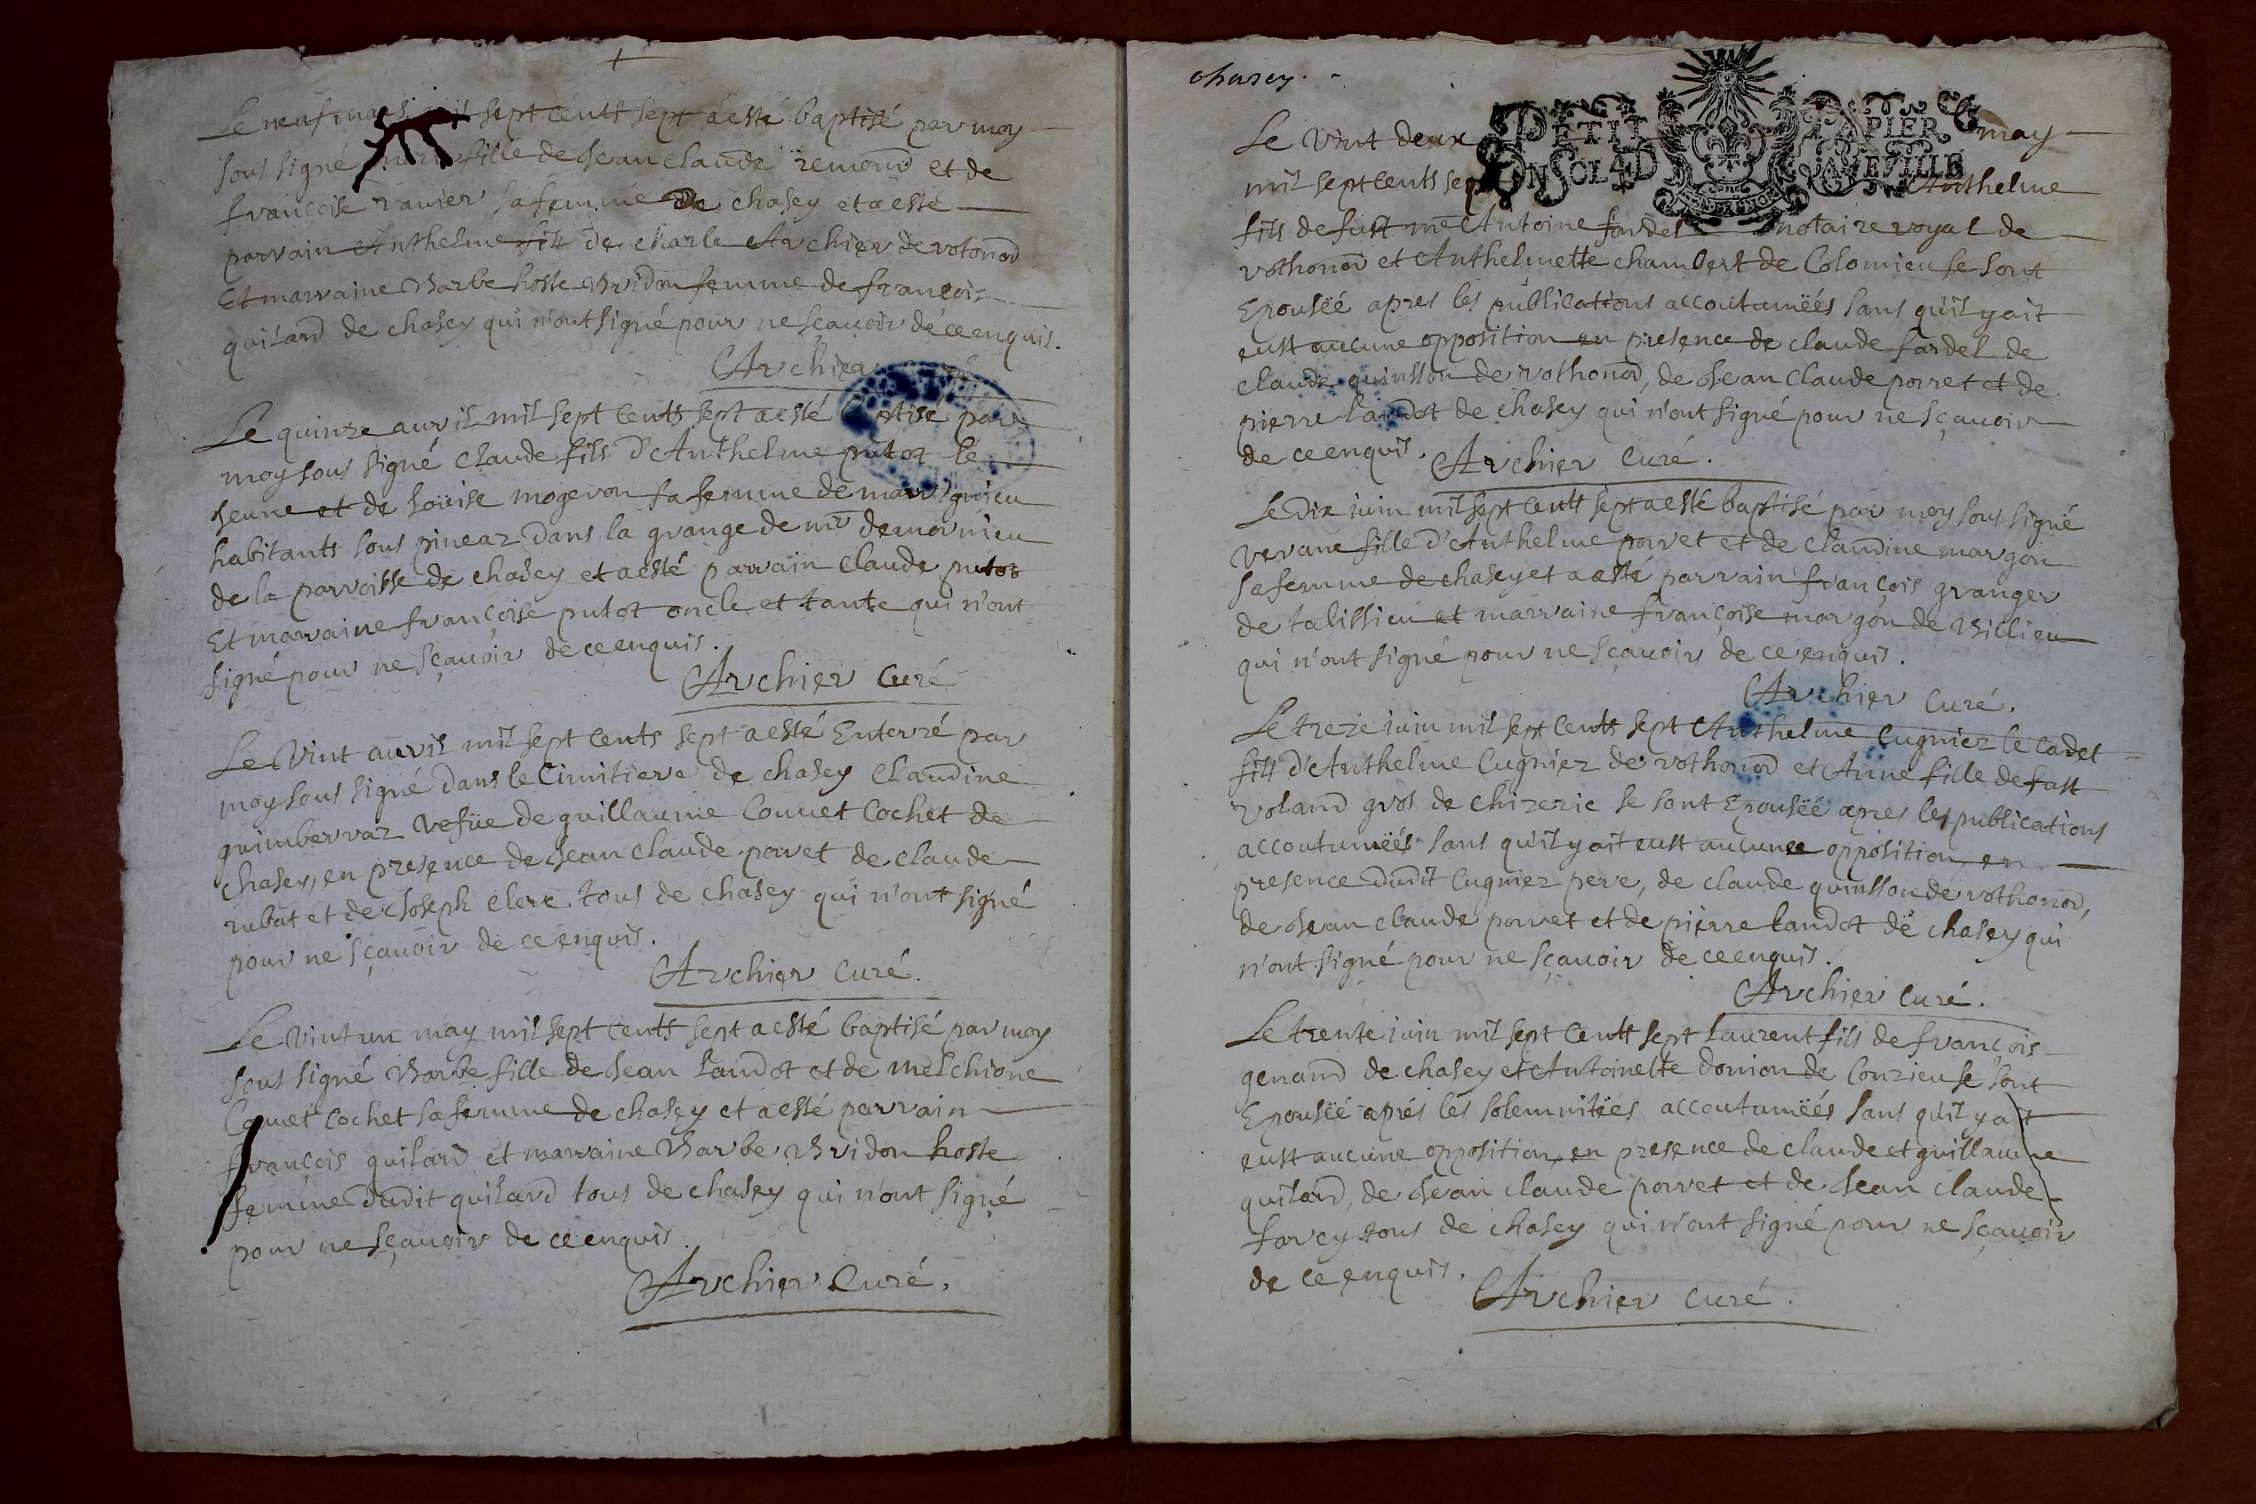 Le neuf mars mil sept cents sept a esté baptisé par moy
sous signé fille de Jean claude remond et de
françoise ravier sa femme de chasey et a esté
parrain Anthelme fils de charle Archier de rotonod
Et marraine Barbe hoste Bridon femme de françois
quilard de chasey qui n'ont signé pour ne sçavoir de ce enquis.
Archier
Le quinze auvril mil sept cents sept a esté baptisé par
moy sous signé claude fils d'Anthelme putot le
Jeune et de Loüise mogeron sa femme de marignieu
habitants sous pineaz dans la grange de mr demornieu
de la parroisse de chasey et a esté parrain claude putot
Et marraine françoise putot oncle et tante qui n'ont
signé pour ne sçavoir de ce enquis.
Archier Curé
Le vint auvril mil sept cents sept a esté Enterré par
moy sous signé dans le Cimitiere de chasey Claudine
guimbervaz vefüe de guillaume Couuet Cochet de
chasey, en presence de Jean claude porret de claude
rubat et de Joseph clerc tous de chasey qui n'ont signé
pour ne sçavoir de ce enquis.
Archier Curé.
Le vint un may mil sept cents sept a esté baptisé par moy
sous signé Barbe fille de Jean Landot et de melchione
Couuet Cochet sa femme de chasey et a esté parrain
françois quilard et marraine Barbe Bridon hoste
femme dudit quilard tous de chasey qui n'ont signé
pour ne sçavoir de ce enquis.
Archier Curé.
chasey.
PETIT PAPIER
UN SOL 4D LA FEUILLE
Le vint deux may
mil sept cents sept Anthelme
fils de fust me Antoine fardel notaire royal de
rothonod et Anthelmette chambert de Colomieu se sont
Epousëé apres les publications accoutumëés sans qu'il y ait
eust aucune opposition en presence de claude fardel de
claude quinsson de rothonod, de Jean Claude porret et de
pierre landot de chasey qui n'ont signé pour ne sçavoir
de ce enquis. Archier Curé.
Le dix iuin mil sept cents sept a esté baptisé par moy sous signé
verane fille d'Anthelme porret et de claudine margon
sa femme de chasey et a esté parrain françois granger
de talissieu et marraine françoise margon de Billieu
qui n'ont signé pour ne sçavoir de ce enquis.
Archier Curé.
Le treze iuin mil sept cents sept Anthelme Cugniez le cadet
fils d'Anthelme Cugniez de rothonod et Anne fille de fust
roland gros de chizerie se sont Epousëé apres les publications
accoutumëés sans qu'il y ait eust aucune opposition en
presence dudit Cugniez pere, de claude quinsson de rothonod,
de Jean claude porret et de pierre landot de chasey qui
n'ont signé pour ne sçavoir de ce enquis.
Archier Curé.
Le trente iuin mil sept cents sept Laurent fils de françois
genand de chasey et Antoinette donion de Conzieu se sont
Epousëé aprés les solemnitëés accoutumëés sans qu'il y ait
eust aucune opposition en presence de claude et guillaume
quilard, de Jean claude porret et de Jean claude
farcy tous de chasey qui n'ont signé pour ne sçavoir
de ce enquis.
Archier Curé.